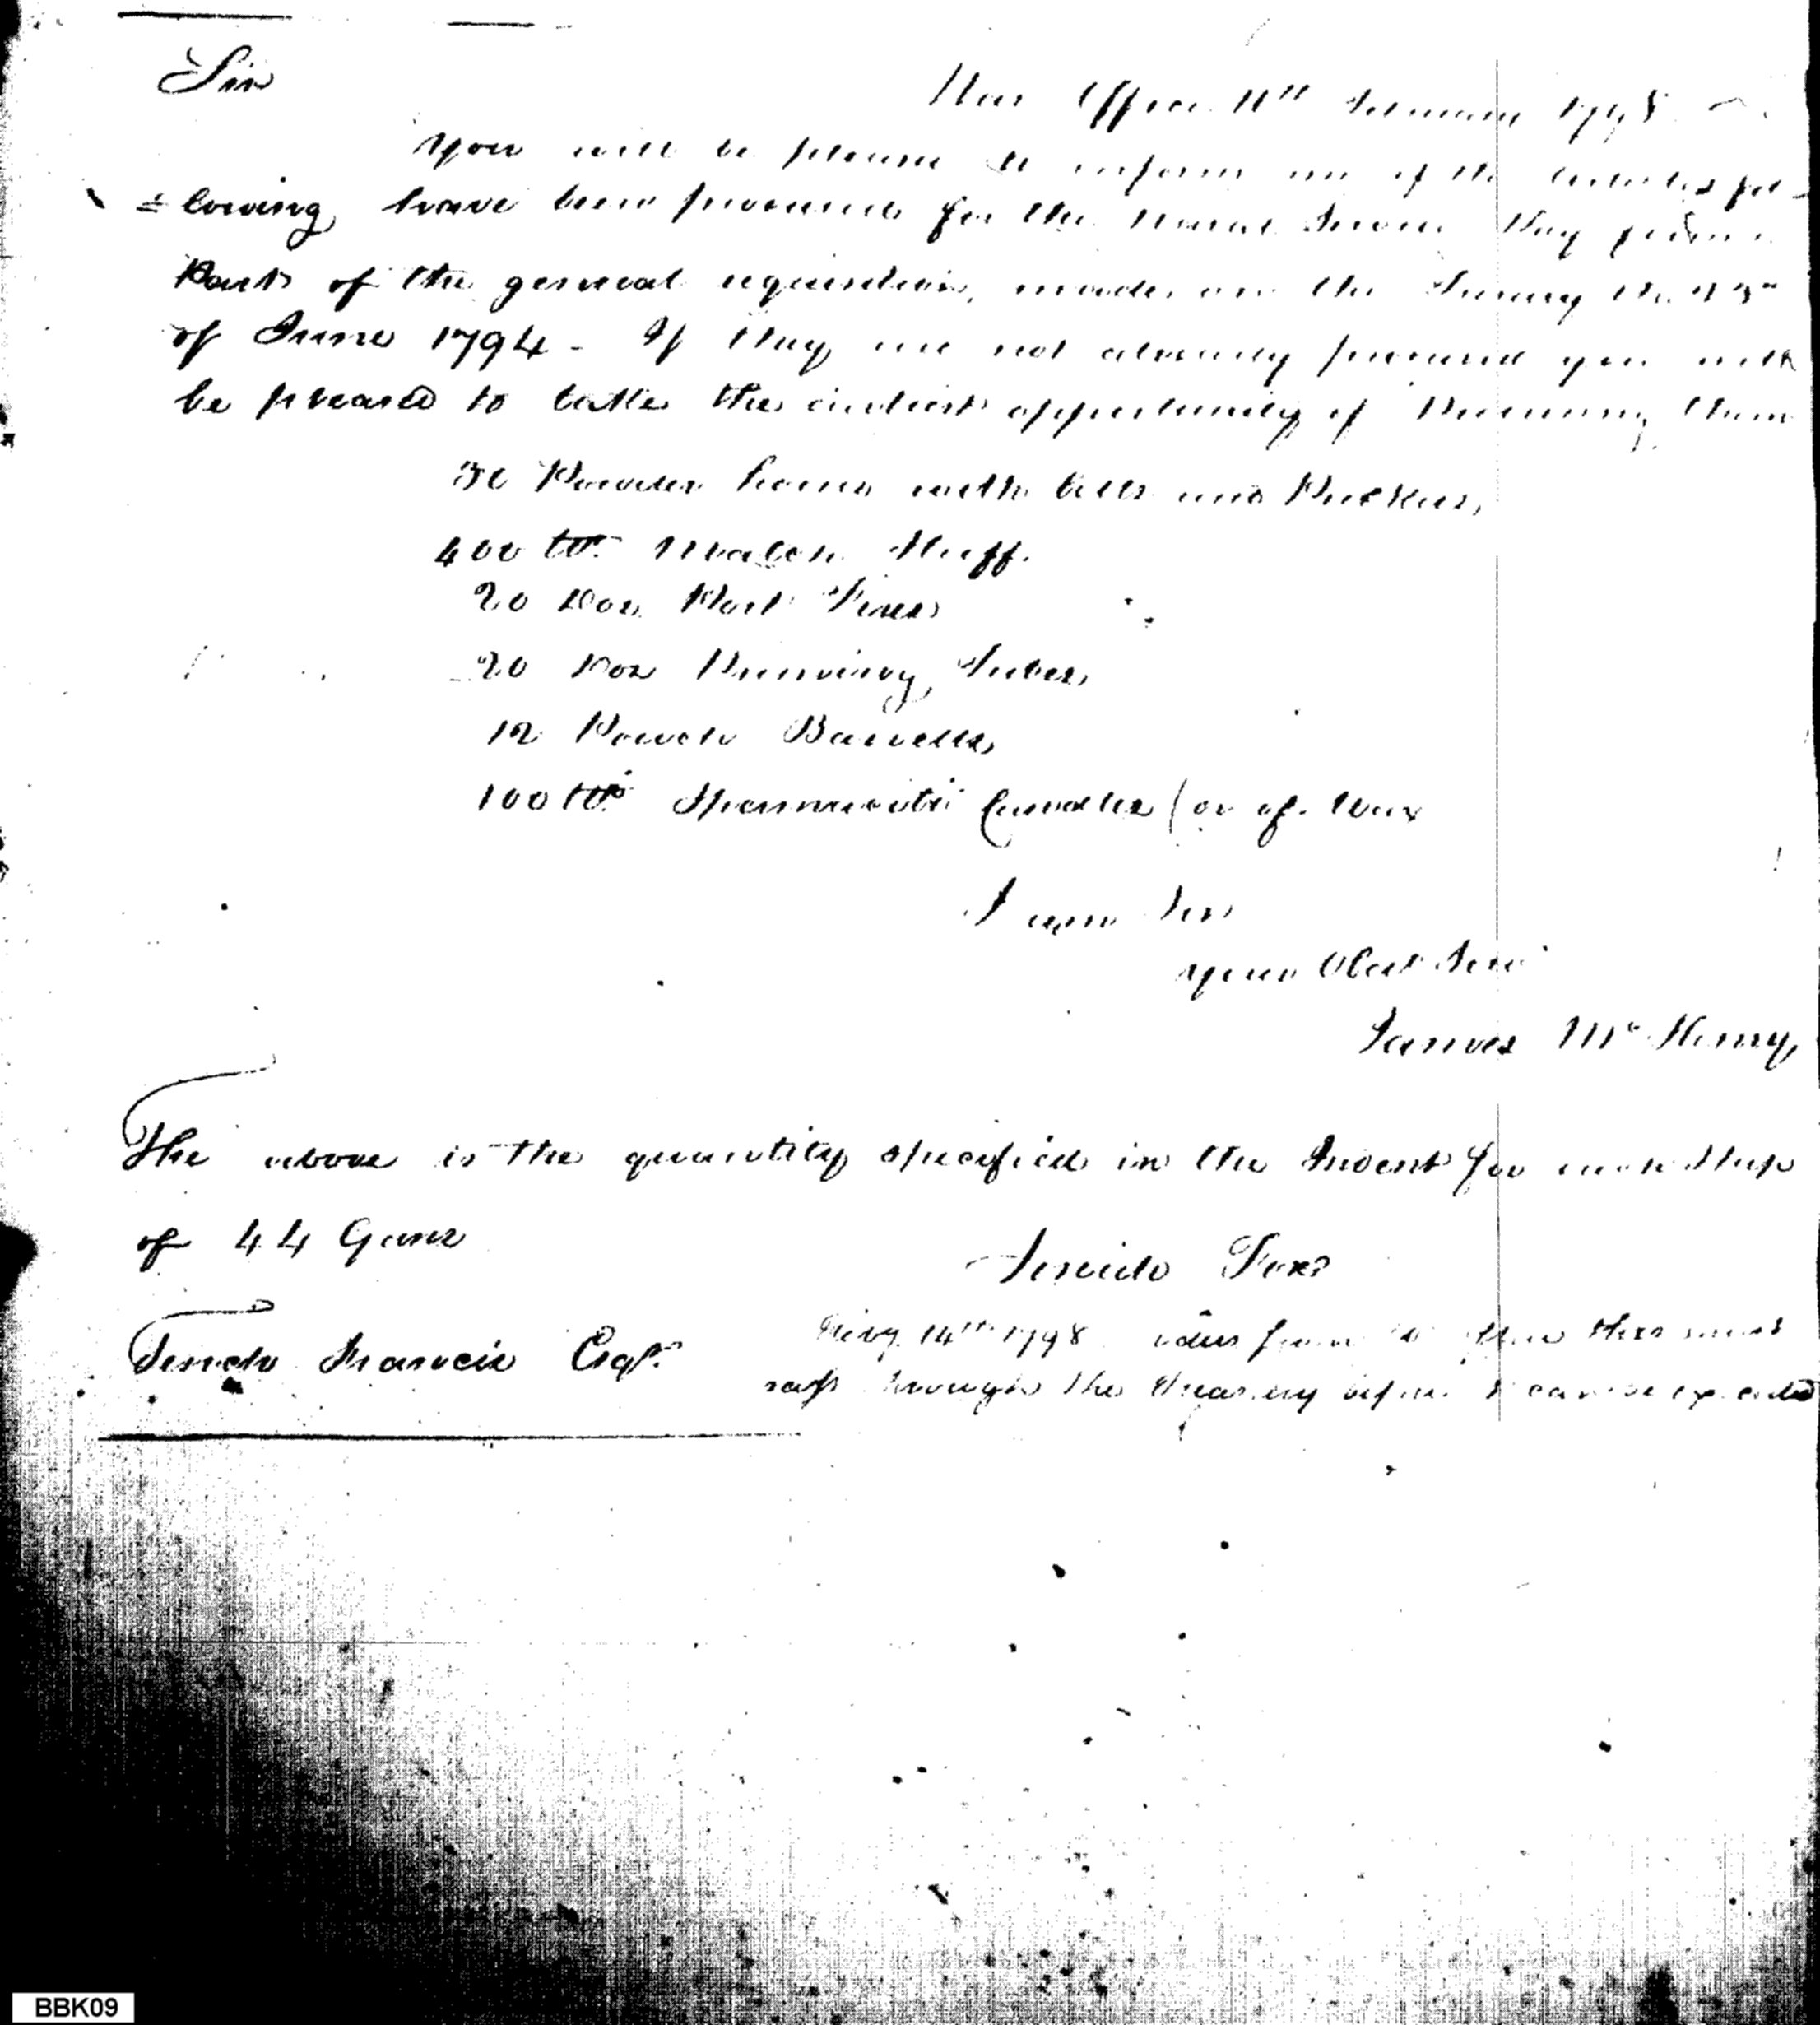 Sir
War Office 11th February 1798
You will be please to inform me if the Articles fol-
=lowing, have been procured for the Naval Service They form a
Part of the general requisition, made on the Treasury the
of June 1794 - If they are not already procured you will
be pleased to take the earliest opportunity of Procuring them
30 Powder horns with bitts and Prickers,
400 lbs. Match Stuff.
20 Doz Port Fires
20 Doz Priming Tubes,
12 Powder Barrells,
100 lbs. Spermaciti Candles (or of Wax
I am Sir
your Obet Serv
James McHenry,
The above is the quantity specified in the Indent for each Ship
of 44 Guns
Tench Francis Esqr.
Feby 14th 1798 this must
pass through the Treasury before it can be executed
BBK09